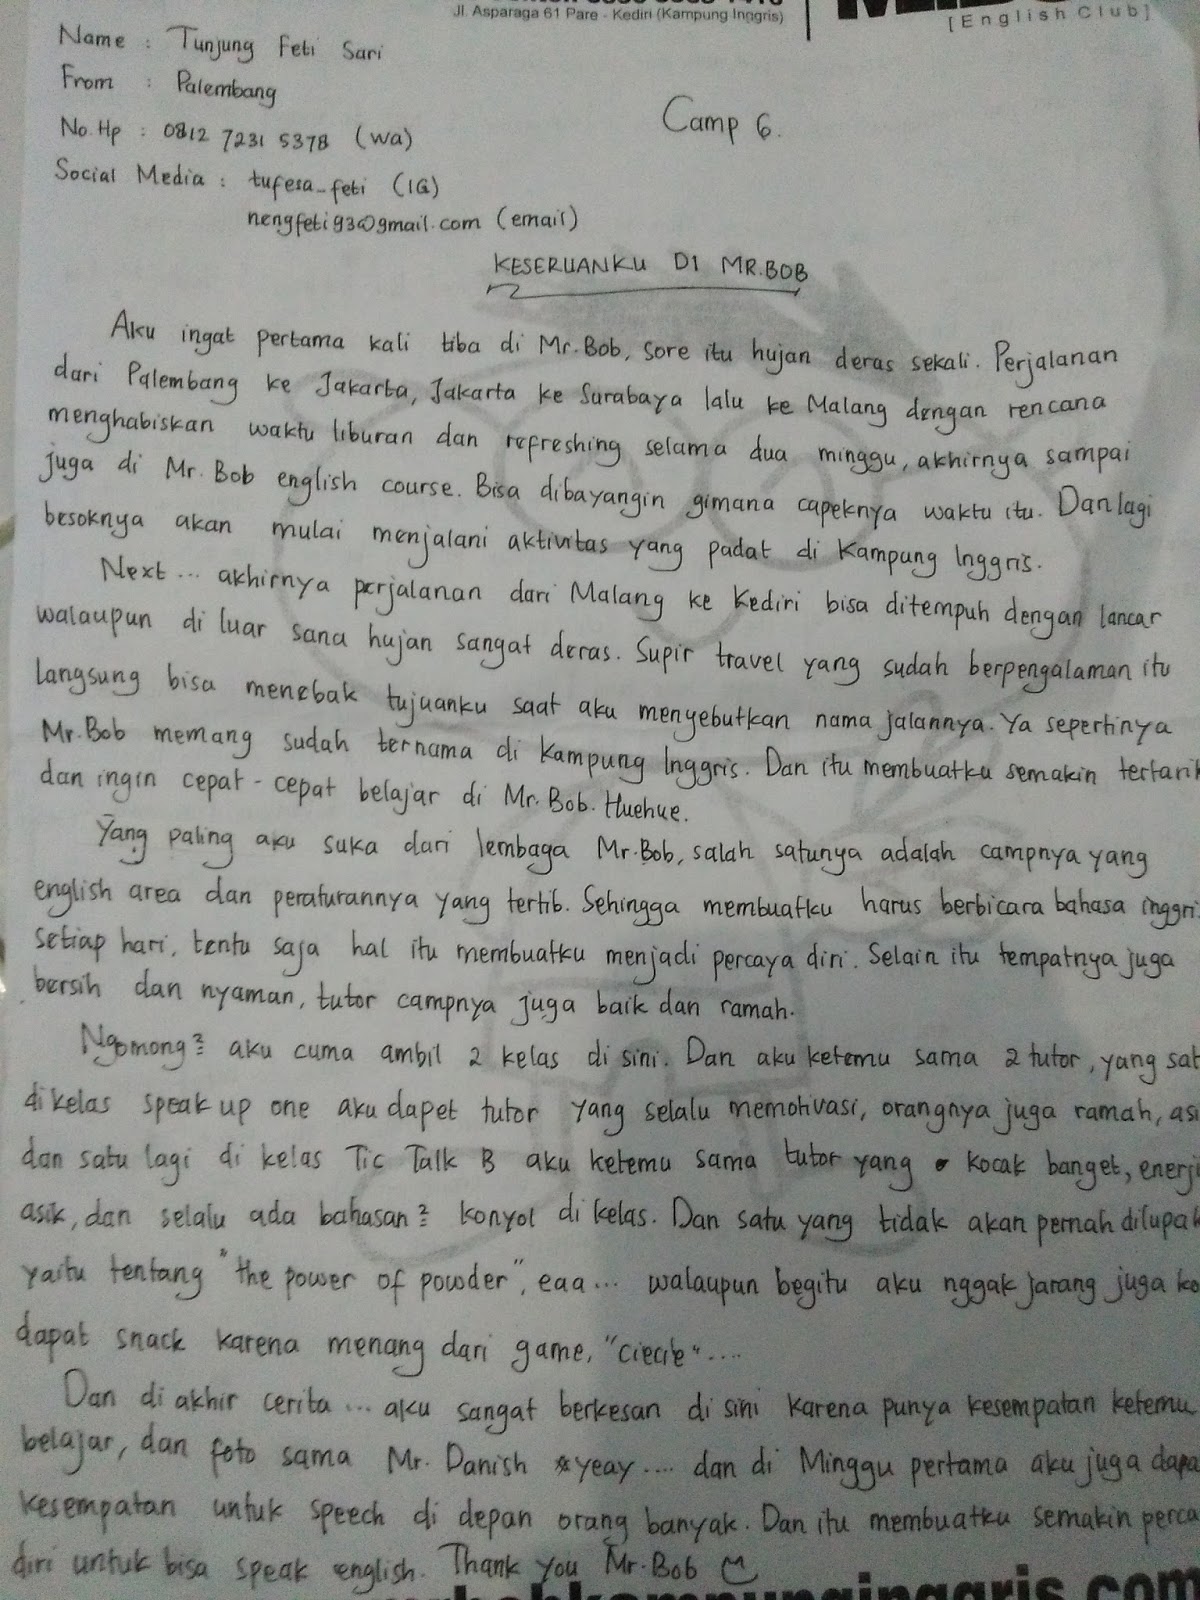 Jl. Asparaga 61 Pare - Kediri (Kampung Inggris)
[English Club]
Name : Tunjung Feti Sari
From : Palembang
Camp 6.
No.Hp : 0812 7231 5378 (wa)
Social Media : tufesa_feti (IG)
nengfeti93@gmail.com (email)
KESERUANKU DI MR.BOB
Aku ingat pertama kali tiba di Mr.Bob, sore itu hujan deras sekali. Perjalanan
dari Palembang ke Jakarta, Jakarta ke Surabaya lalu ke Malang dengan rencana
menghabiskan waktu liburan dan refreshing selama dua minggu, akhirnya sampai
juga di Mr. Bob english course. Bisa dibayangin gimana capeknya waktu itu. Dan lagi
besoknya akan mulai menjalani aktivitas yang padat di Kampung Inggris.
Next ... akhirnya perjalanan dari Malang ke Kediri bisa ditempuh dengan lancar
walaupun di luar sana hujan sangat deras. Supir travel yang sudah berpengalaman itu
langsung bisa menebak tujuanku saat aku menyebutkan nama jalannya. Ya sepertinya
Mr.Bob memang sudah ternama di Kampung Inggris. Dan itu membuatku semakin tertarik
dan ingin cepat-cepat belajar di Mr. Bob. Huehue.
Yang paling aku suka dari lembaga Mr.Bob, salah satunya adalah campnya yang
english area dan peraturannya yang tertib. Sehingga membuatku harus berbicara bahasa inggri
setiap hari, tentu saja hal itu membuatku menjadi percaya diri. Selain itu tempatnya juga
bersih dan nyaman, tutor campnya juga baik dan ramah.
Ngomong2 aku cuma ambil 2 kelas di sini. Dan aku ketemu sama 2 tutor, yang sat
di kelas speak up one aku dapet tutor yang selalu memotivasi, orangnya juga ramah, asi
dan satu lagi di kelas Tic Talk B aku ketemu sama tutor yang kocak banget, enerji
asik, dan selalu ada bahasan2 konyol di kelas. Dan satu yang tidak akan pernah dilupak
yaitu tentang "the power of powder", eaa... walaupun begitu aku nggak jarang juga ko
dapat snack karena menang dari game, "ciecie"....
Dan di akhir cerita ... aku sangat berkesan di sini karena punya kesempatan ketemu
belajar, dan foto sama Mr. Danish *yeay.... dan di Minggu pertama aku juga dapa
kesempatan untuk speech di depan orang banyak. Dan itu membuatku semakin perca
diri untuk bisa speak english. Thank You Mr.Bob